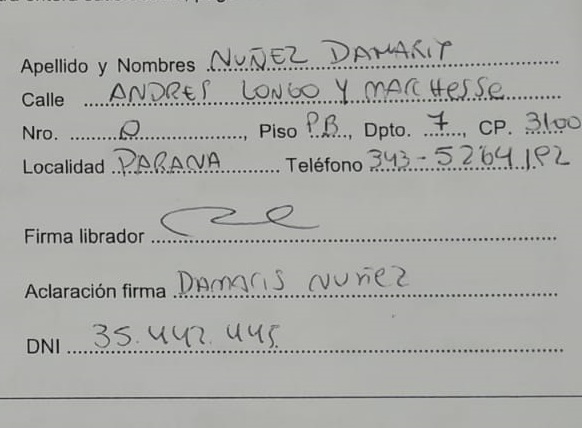 Apellido y Nombres NUÑEZ DAMARIS
Calle ANDRES LONGO Y MARCHESSE
Nro. 0, Piso P.B., Dpto. 7, CP. 3100
Localidad PARANA Teléfono 343-5264192
Firma librador
Aclaración firma DAMARIS NUÑEZ
DNI 35.442.445